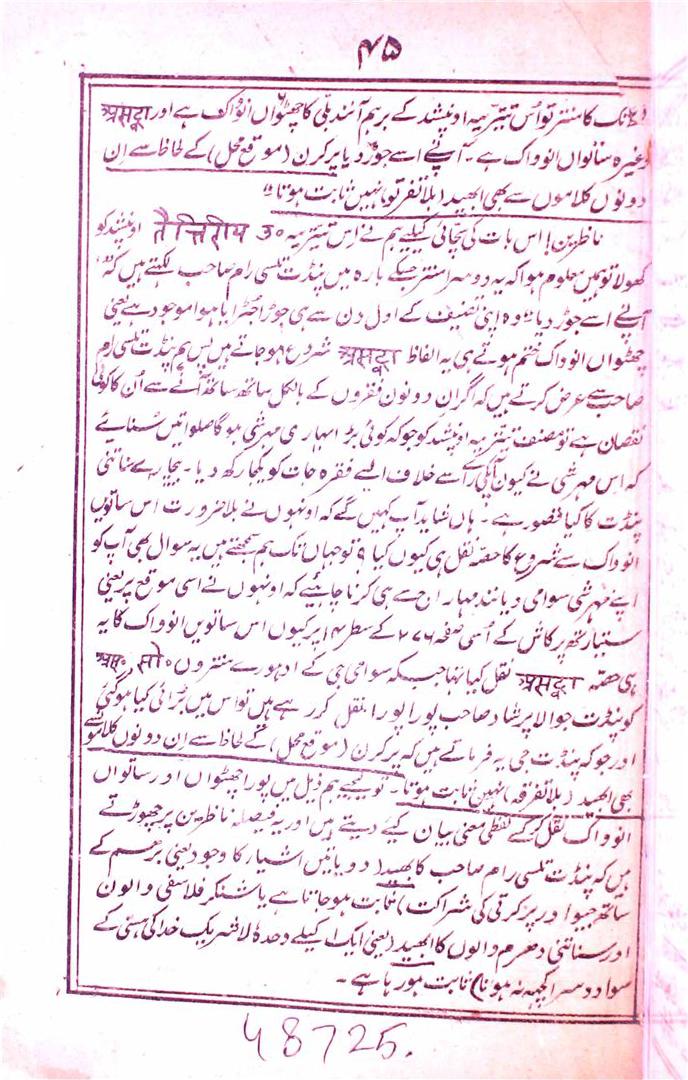 ۴۵
تک کا منتر تو اُس تیتریہ اوپنشد کے برہم آنند بلی کا چھٹواں انوواک ہے اور असद्वा
وغیرہ ساتواں انوواک ہے۔ آپنے اسے جوڑ دیا پر کرن (موقع محل) کے لحاظ سے اِن
دونوں کلاموں سے بھی ابھید (بلا تفرقہ) نہیں ثابت ہوتا"
ناظرین! اس بات کی سچائی کیلیے ہم نے اس تیتریہ तैत्तिरीय उ० اوپنشد کو
کھولا تو ہمیں معلوم ہوا کہ یہ دوسرا منتر جسکے بارہ میں پنڈت تلسی رام صاحب لکھتے ہیں کہ "
آپنے اسے جوڑ دیا" وہ اپنی تصنیف کے اول دن سے ہی جوڑا جُڑایا ہوا موجود ہے یعنی
چھٹواں انوواک ختم ہوتے ہی یہ الفاظ असद्वा شروع ہو جاتے ہیں پس ہم پنڈت تلسی رام
صاحب سے عرض کرتے ہیں کہ اگر اِن دونوں فقروں کے بالکل ساتھ ساتھ آنے سے اُن کا کوئی
نقصان ہے تو مصنف تیتریہ اوپنشد کو جو کہ کوئی بڑا بہاری مہرشی ہوگا صلواتیں سُنائیے
کہ اس مہرشی نے کیوں آپکی رائے سے خلاف ایسے فقرہ جات کو یکجا رکھ دیا۔ بیچارے سناتنی
پنڈت کا کیا قصور ہے۔ ہاں شاید آپ کہیں گے کہ اونہوں نے بلا ضرورت اس ساتویں
انوواک سے شروع کا حصہ نقل ہی کیوں کیا؟ تو جہاں تک ہم سمجھتے ہیں یہ سوال بھی آپ کو
اپنے مہرشی سوامی دیانند مہاراج سے ہی کرنا چاہیئے کہ اونہوں نے اسی موقع پر یعنی
ستیارتھ پرکاش کے اُسی صفحہ ۲۷۶ کے سطر ۱۴ پر کیوں اس ساتویں انوواک کا یہ
ہی حصہ असद्वा نقل کیا تھا جب کہ سوامی جی کے ادہورے منتروں सो० अस०
کو پنڈت جوالا پرشاد صاحب پورا پورا نقل کر رہے ہیں تو اس میں بُرائی کیا ہوگئی
اور جو کہ پنڈت جی یہ فرماتے ہیں کہ پر کرن (موقع محل) کے لحاظ سے اِن دونوں کلاموں سے
بھی ابھید (بلا تفرقہ) نہیں ثابت ہوتا۔ تو لیجیے ہم ذیل میں پورا چھٹواں اور ساتواں
انوواک نقل کرکے لفظی معنی بیان کیے دیتے ہیں اور یہ فیصلہ ناظرین پر چھوڑتے
ہیں کہ پنڈت تلسی رام صاحب کا بھید (دو یا تین اشیار کا وجود یعنی برہم کے
ساتھ جیو اور پرکرتی کی شراکت) ثابت ہو جاتا ہے یا شنکر فلاسفی والوں
اور سناتنی دھرم والوں کا ابھید (یعنی ایک اکیلے وحدہٗ لاشریک خدا کی ہستی کے
سوا دوسرا کچھہ نہ ہونا) ثابت ہو رہا ہے۔
48725.